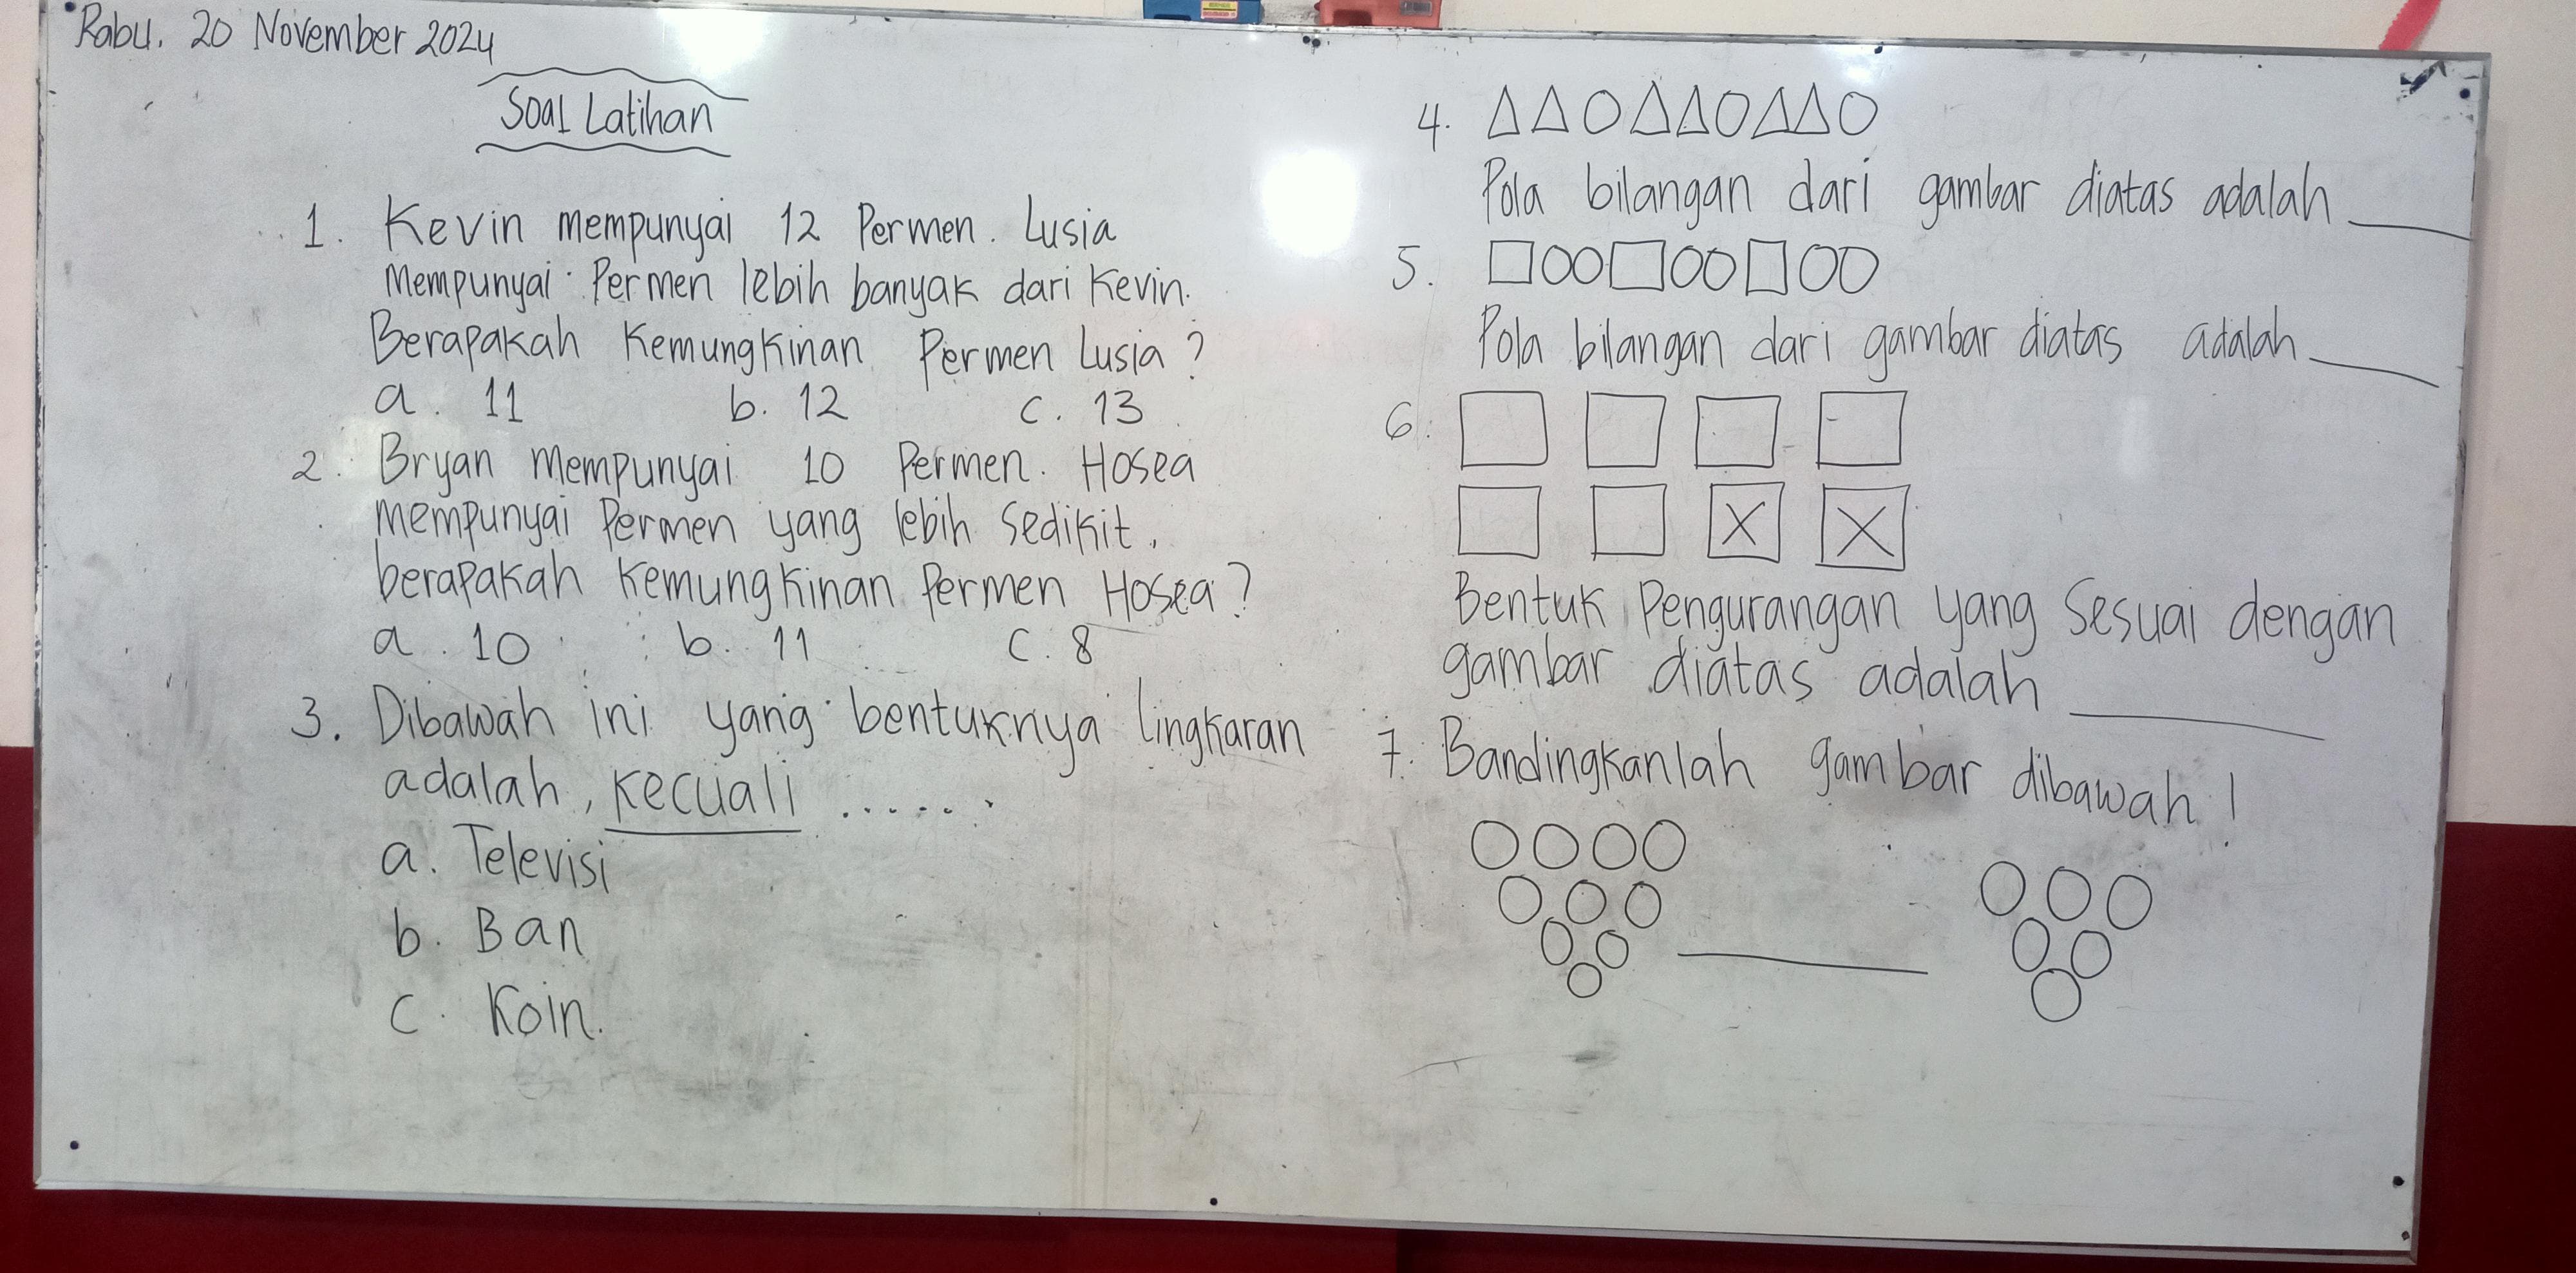 Rabu, 20 November 2024
Soal Latihan
1. Kevin mempunyai 12 Permen. Lusia
Mempunyai Permen lebih banyak dari Kevin.
Berapakah Kemungkinan Permen Lusia?
a. 11 b. 12 c. 13
2. Bryan Mempunyai 10 Permen. Hosea
mempunyai Permen yang lebih Sedikit.
berapakah Kemungkinan Permen Hosea?
a. 10 b. 11 C. 8
3. Dibawah ini yang bentuknya lingkaran
adalah, Kecuali ......
a. Televisi
b. Ban
c. Koin.
4.
Pola bilangan dari gambar diatas adalah ___
5.
Pola bilangan dari gambar diatas adalah ___
6.
X X
Bentuk Pengurangan yang Sesuai dengan
gambar diatas adalah ___
7. Bandingkanlah gambar dibawah!